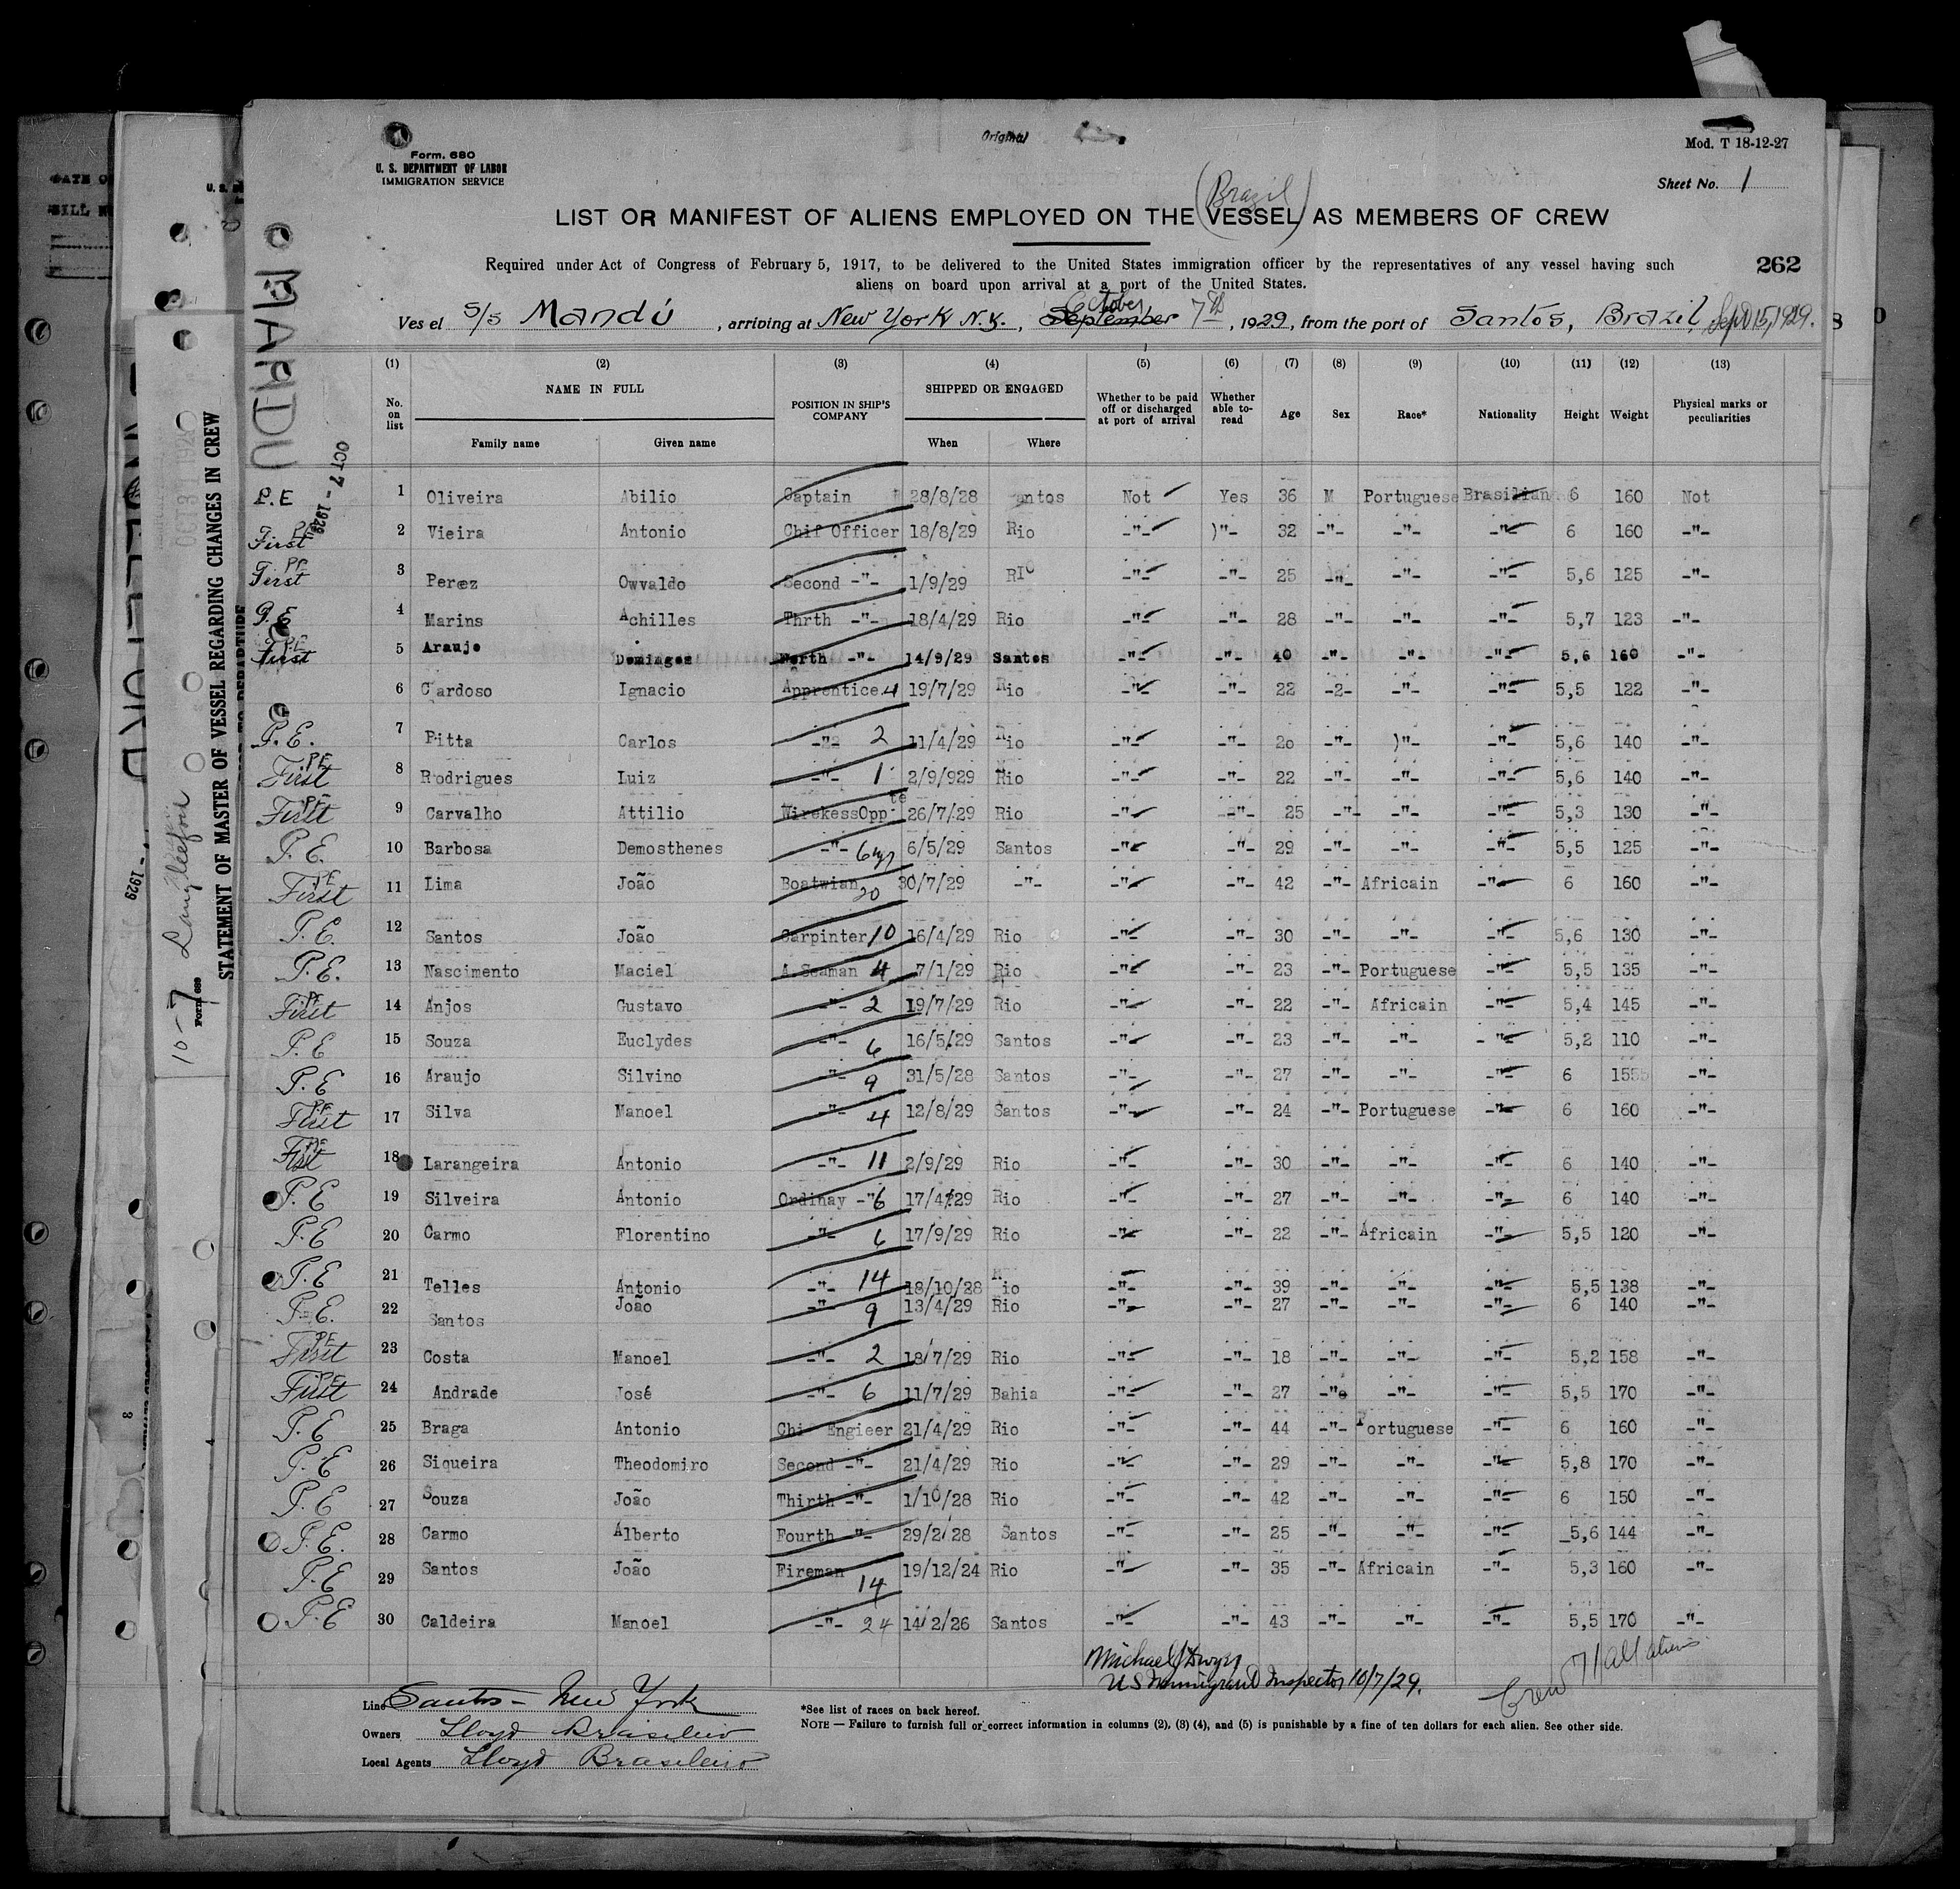 Original
Form. 680
U. S. DEPARTMENT OF LABOR
IMMIGRATION SERVICE
Mod. T 18-12-27
Sheet No. 1
(Brazil)
LIST OR MANIFEST OF ALIENS EMPLOYED ON THE VESSEL AS MEMBERS OF CREW
Required under Act of Congress of February 5, 1917, to be delivered to the United States immigration officer by the representatives of any vessel having such
aliens on board upon arrival at a port of the United States.
262
October
Ves el S/S Mandú, arriving at New York N.Y., September 7th, 1929, from the port of Santos, Brazil, Sept 15, 1929.
MANDU
OCT 7 - 1929
(1) (2) (3) (4) (5) (6) (7) (8) (9) (10) (11) (12) (13)
No. on list NAME IN FULL Family name Given name POSITION IN SHIP'S COMPANY SHIPPED OR ENGAGED When Where Whether to be paid off or discharged at port of arrival Whether able to- read Age Sex Race* Nationality Height Weight Physical marks or peculiarities
P.E 1 Oliveira Abilio Captain 28/8/28 antos Not Yes 36 M Portuguese Brasilian 6 160 Not
First PE 2 Vieira Antonio Chif Officer 18/8/29 Rio -"- )"- 32 -"- -"- -"- 6 160 -"-
First PE 3 Perez Owvaldo Second -"- 1/9/29 RIO -"- -"- 25 -"- -"- -"- 5,6 125 -"-
P.E 4 Marins Achilles Thrth -"- 18/4/29 Rio -"- -"- 28 -"- -"- -"- 5,7 123 -"-
First PE 5 Araujo Domingos North -"- 14/9/29 Santos -"- -"- 40 -"- -"- -"- 5,6 160 -"-
6 Cardoso Ignacio Apprentice 4 19/7/29 Rio -"- -"- 22 -2- -"- -"- 5,5 122 -"-
P.E. 7 Pitta Carlos -"- 2 11/4/29 Rio -"- -"- 2o -"- )"- -"- 5,6 140 -"-
First PE 8 Rodrigues Luiz -"- 1 2/9/929 Rio -"- -"- 22 -"- -"- -"- 5,6 140 -"-
First PE 9 Carvalho Attilio WirekessOpp te 26/7/29 Rio -"- -"- 25 -"- -"- -"- 5,3 130 -"-
P.E. 10 Barbosa Demosthenes -"- 6 yr 6/5/29 Santos -"- -"- 29 -"- -"- -"- 5,5 125 -"-
First PE 11 Lima João Boatwian 20 30/7/29 -"- -"- -"- 42 -"- Africain -"- 6 160 -"-
P.E. 12 Santos João Carpinter 10 16/4/29 Rio -"- -"- 30 -"- -"- -"- 5,6 130 -"-
P.E. 13 Nascimento Maciel A.Seaman 4 7/1/29 Rio -"- -"- 23 -"- Portuguese -"- 5,5 135 -"-
First PE 14 Anjos Gustavo -"- 2 19/7/29 Rio -"- -"- 22 -"- Africain -"- 5,4 145 -"-
P.E 15 Souza Euclydes -"- 6 16/5/29 Santos -"- -"- 23 -"- -"- -"- 5,2 110 -"-
P.E 16 Araujo Silvino -"- 9 31/5/28 Santos -"- -"- 27 -"- -"- -"- 6 155 -"-
First PE 17 Silva Manoel -"- 4 12/8/29 Santos -"- -"- 24 -"- Portuguese -"- 6 160 -"-
First PE 18 Larangeira Antonio -"- 11 2/9/29 Rio -"- -"- 30 -"- -"- -"- 6 140 -"-
P.E 19 Silveira Antonio Ordinay -" 6 17/4/29 Rio -"- -"- 27 -"- -"- -"- 6 140 -"-
P.E 20 Carmo Florentino -"- 6 17/9/29 Rio -"- -"- 22 -"- Africain -"- 5,5 120 -"-
P.E 21 Telles Antonio -"- 14 18/10/28 Rio -"- -"- 39 -"- -"- -"- 5,5 138 -"-
P.E. 22 Santos João -"- 9 13/4/29 Rio -"- -"- 27 -"- -"- -"- 6 140 -"-
First PE 23 Costa Manoel -"- 2 18/7/29 Rio -"- -"- 18 -"- -"- -"- 5,2 158 -"-
First PE 24 Andrade José -"- 6 11/7/29 Bahia -"- -"- 27 -"- -"- -"- 5,5 170 -"-
P.E 25 Braga Antonio Chi Engieer 21/4/29 Rio -"- -"- 44 -"- Portuguese -"- 6 160 -"-
P.E 26 Siqueira Theodomiro Second -"- 21/4/29 Rio -"- -"- 29 -"- -"- -"- 5,8 170 -"-
P.E 27 Souza João Thirth -"- 1/10/28 Rio -"- -"- 42 -"- -"- -"- 6 150 -"-
P.E. 28 Carmo Alberto Fourth -"- 29/2/28 Santos -"- -"- 25 -"- -"- -"- 5,6 144 -"-
P.E 29 Santos João Fireman 14 19/12/24 Rio -"- -"- 35 -"- Africain -"- 5,3 160 -"-
P.E 30 Caldeira Manoel -"- 24 14/2/26 Santos -"- -"- 43 -"- -"- -"- 5,5 170 -"-
Michael J Dwyer
US Immigrant Inspector 10/7/29.
Crew 71 all aliens
Line Santos - New York
Owners Lloyd Brasileiro
Local Agents Lloyd Brasileiro
*See list of races on back hereof.
NOTE — Failure to furnish full or correct information in columns (2), (3) (4), and (5) is punishable by a fine of ten dollars for each alien. See other side.
STATEMENT OF MASTER OF VESSEL REGARDING CHANGES IN CREW
Form 689
10-7
1929